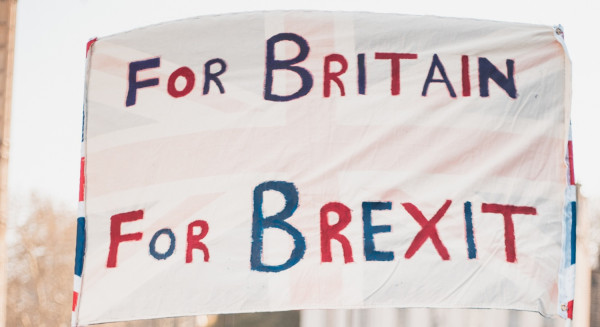 For Britain
For Brexit